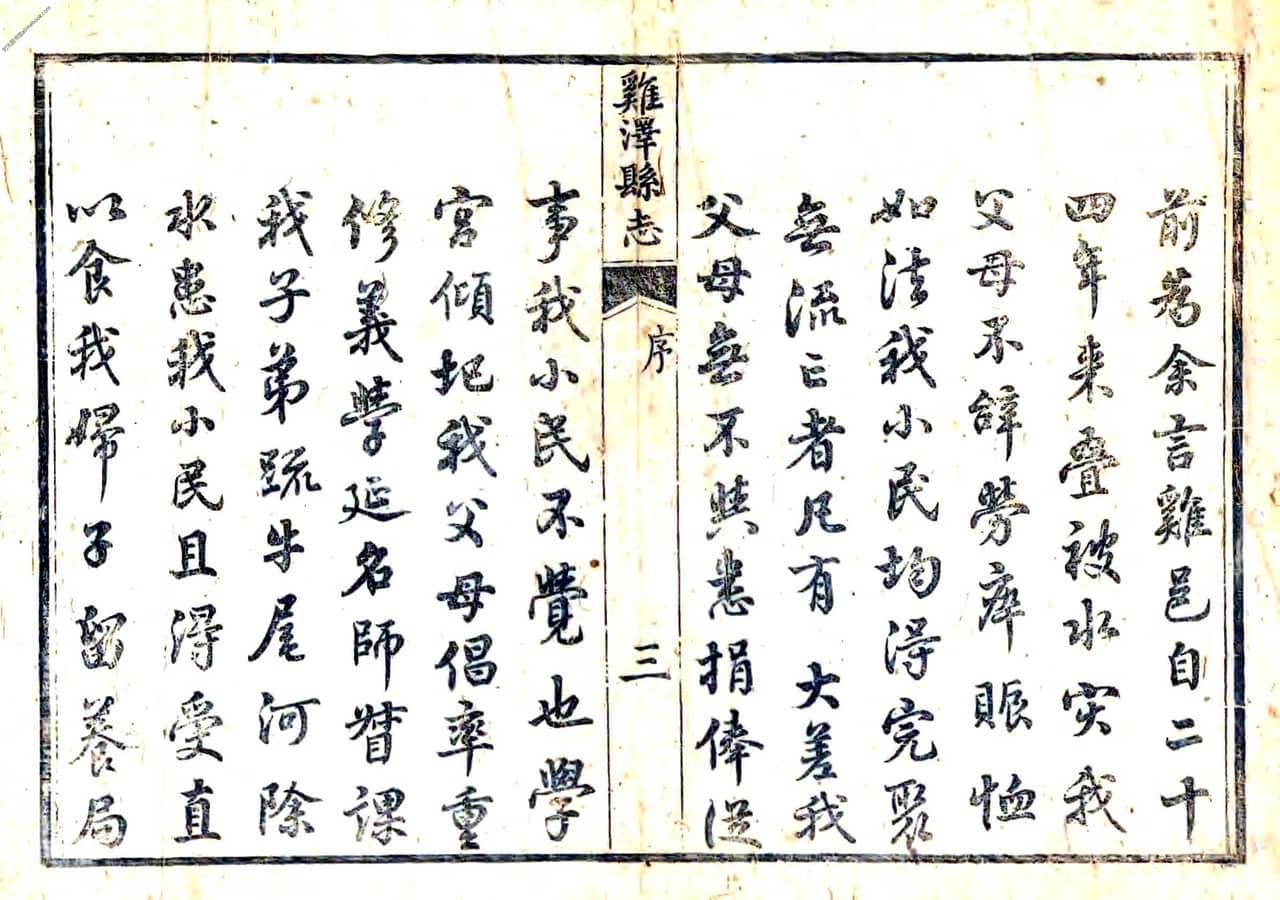 前為余言雞邑自二十
四年来叠被水灾我
父母不辞勞瘁賑恤
如法我小民均得完聚
無流亡者凡有 大差我
父母無不典悉捐俸從
雞澤縣志
序
三
事我小民不覺也學
宫傾圯我父母倡率重
修義學延名師督課
我子弟疏牛尾河除
水患我小民且得受直
以食我婦子留養局